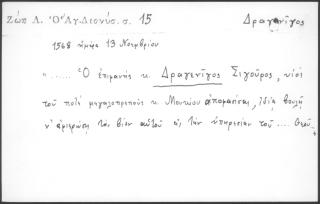 Ζώη Λ. Ὁ Ἅγ. Διονύσ. σ. 15
Δραγανῖγος
1568 ἡμέρα 13 Νοεμβρίου
"...... Ὁ ἐπιφανὴς κ. Δραγενῖγος Σιγοῦρος, υἱὸς
τοῦ ποτὲ μεγαλοπρεποῦς κ. Μουκίου ἀποφασίσας, ἰδίᾳ βουλῇ
ν' ἀφιερώσῃ τὸν βίον αὐτοῦ εἰς τὴν ὑπηρεσίαν τοῦ .... Θεοῦ..